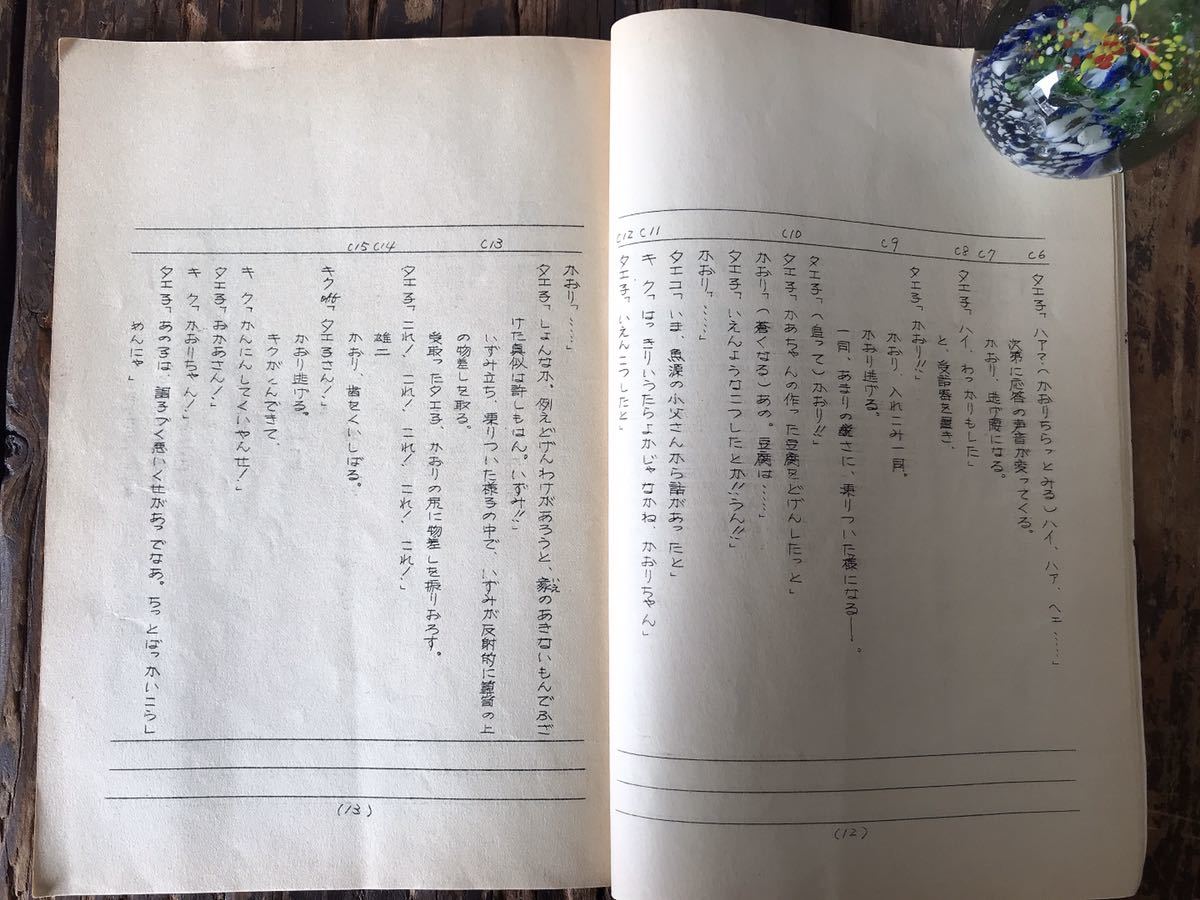 C6
タエ子「ハァ？（かおりちらっとみる）ハイ、ハァ、ヘェ……」
次第に応答の声音が変ってくる。
C7
かおり、逃げ腰になる。
C8
タエ子「ハイ、わっかりもした」
と、受話器を置き、
タエ子「かおり!!」
C9
かおり、入れこみ一同。
かおり逃げる。
一同、あまりの厳さに、乗りついた様になる――。
タエ子（追って）かおり!!」
C10
タエ子「かあちゃんの作った豆腐をどげんしたっと」
かおり「（蒼くなる）あの。豆腐は……」
タエ子「いえんようなこつしたとか!!うん!!」
かおり「……」
タエコ「いま、魚源の小父さんから話があったと」
C11
キク「はっきりいうたらよかじゃなかね、かおりちゃん」
C12
タエ子「いえんこつしたと」
(12)
かおり「……」
タエ子「しょんなか。例えどげんわけがあろうと、家のあきないもんでふざ
いえ
けた真似は許しもはん。いずみ!!」
C13
いずみ立ち、乗りついた様子の中で、いずみが反射的に箪笥の上
の物差しを取る。
受取ったタエ子、かおりの尻に物差しを振りおろす。
タエ子「これ！これ！これ！これ！これ！」
C14
雄二
C15
かおり、歯をくいしばる。
キクoff「タエ子さん！」
かおり逃げる。
キクがとんできて、
キク「かんにんしてくいやんせ！」
タエ子「おかあさん！」
キク「かおりちゃん！」
タエ子「あの子は、調子づく悪いくせがあってなあ。ちっとばっかいこら」
めんにゃ」
(13)